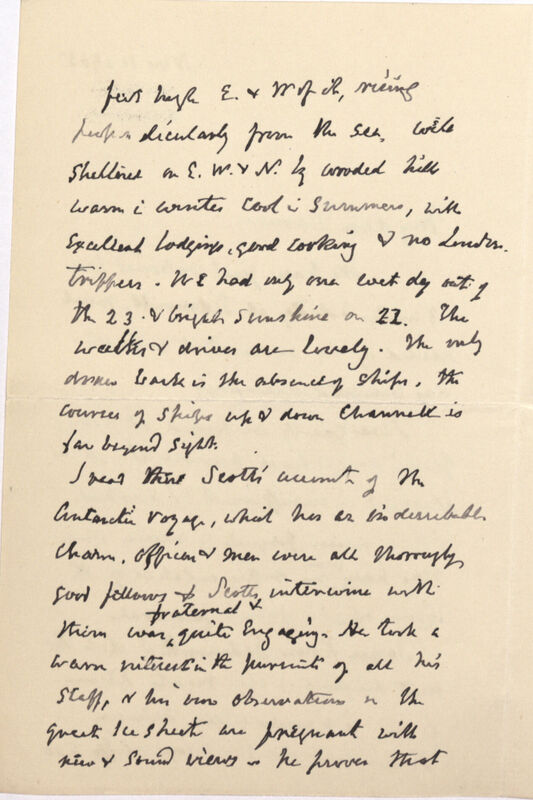 feet high E. & W of it, rising
perpendicularly from the sea, well
sheltered on E. W. & N. by wooded hills
warm i winter cool i Summers, with
excellent lodgings, good cooking & no London
trippers. We had only one wet day out of
the 23. & bright Sunshine on 22. The
walks & drives are lovely. The only
draw back is the absence of ships, the
courses of ships up & down Channell is
far beyond sight.
I read there Scott's account of the
Antarctic voyage, which has an indescribable
charm. Officers & men were all thoroughly
good fellows & Scott's with
them was fraternal & quite Engaging. He took a
warm interest in the pursuits of all his
Staff, & his own observations on the
great Ice sheet are pregnant with
new & sound views he proves that